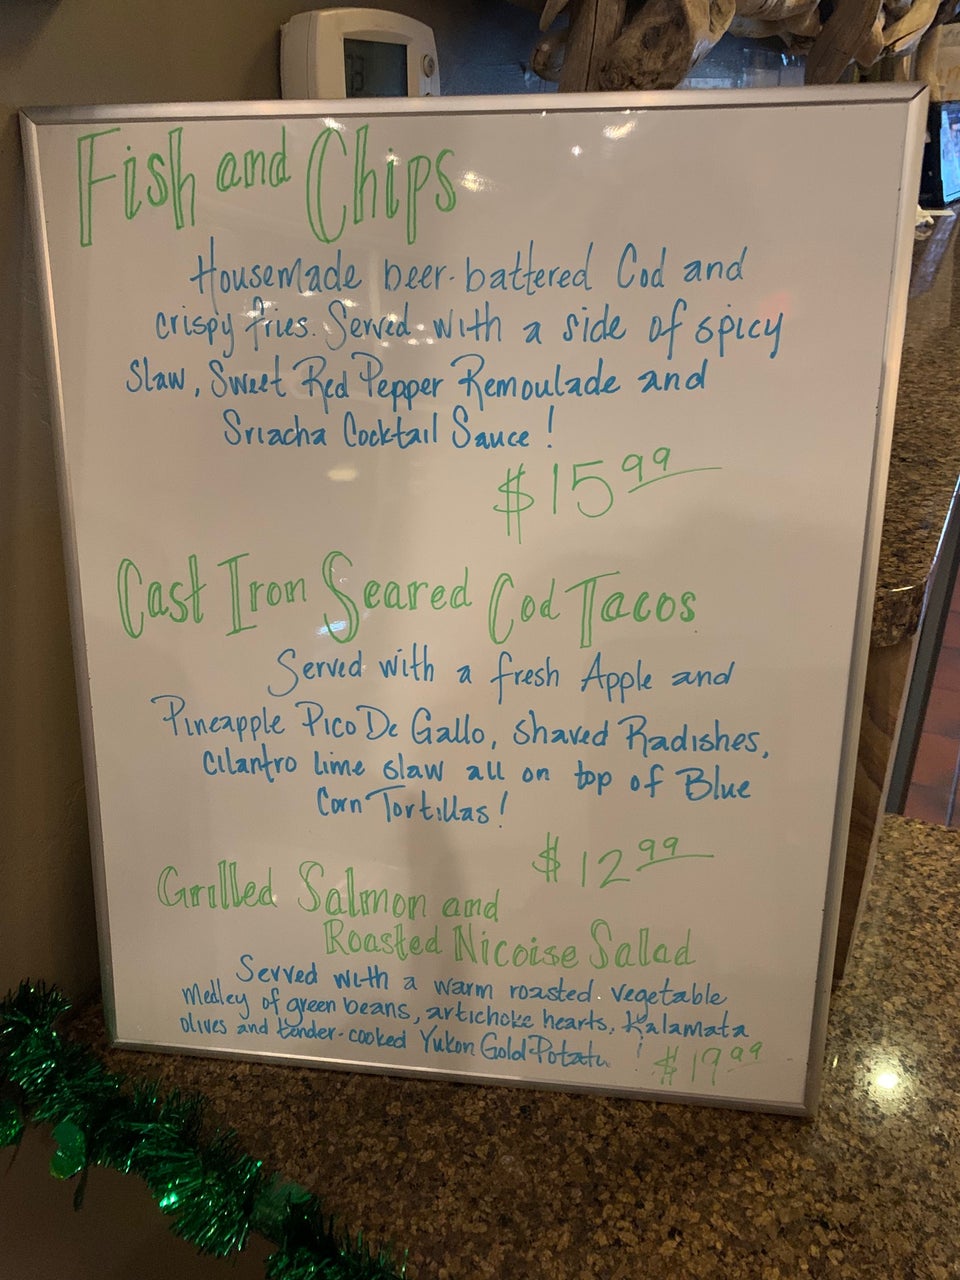 Fish and Chips
Housemade beer-battered Cod and
crispy fries. Served with a side of spicy
Slaw, Sweet Red Pepper Remoulade and
Sriacha Cocktail Sauce!
$15.99
Cast Iron Seared Cod Tacos
Served with a fresh Apple and
Pineapple Pico De Gallo, shaved Radishes,
Cilantro lime slaw all on top of Blue
Corn Tortillas!
$12.99
Grilled Salmon and
Roasted Nicoise Salad
Served with a warm roasted vegetable
medley of green beans, artichoke hearts, Kalamata
olives and tender-cooked Yukon Gold Potato !
$19.99